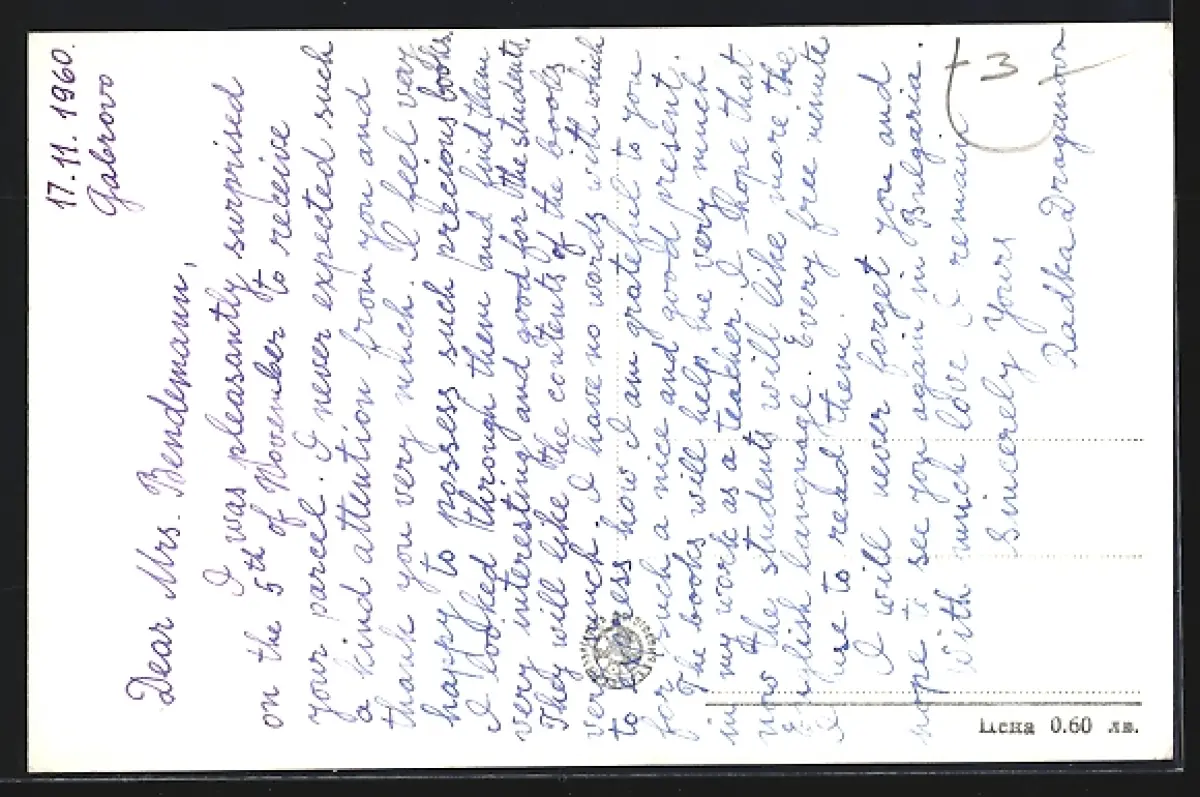 17.11.1960.
Gabrovo
Dear Mrs. Bendemann,
I was pleasantly surprised
on the 5th of November to receive
your parcel. I never expected such
a kind attention from you and
thank you very much. I feel very
happy to possess such precious books.
I looked through them and find them
very interesting and good for the students.
They will like the contents of the books
very much. I have no words with which
to express how I am grateful to you
for such a nice and good present.
The books will help me very much
in my work as a teacher. I hope that
now the students will like more the
English language. Every free minute
I use to read them.
I will never forget you and
hope to see you again in Bulgaria.
With much love I remain
Sincerely yours
Radka Draganova
3
Цена 0.60 лв.